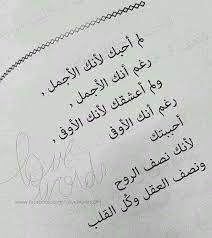 لم أحبك لأنك الأجمل ,
رغم أنك الأجمل ,
ولم أعشقك لأنك الأوفى ,
رغم أنك الأوفى
أحببتك
لأنك نصف الروح
ونصف العقل وكل القلب
love